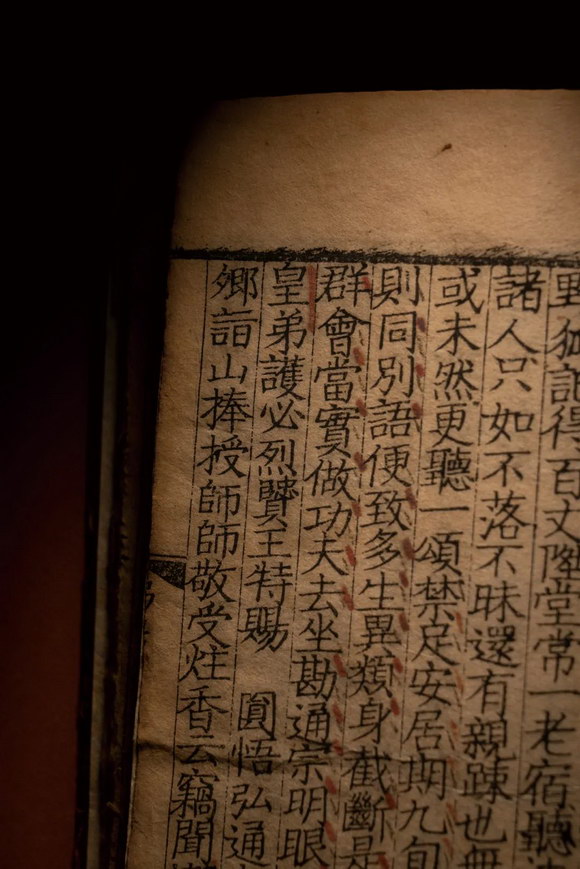 野狐話得百丈陞堂常一老宿聽
諸人只如不落不昧還有親踈也無
或未然更聽一頌禁足安居期九旬
則同別語便致多生異類身截斷是
群會當實做功夫去坐勘通宗明眼
皇弟護必烈賢王特賜 圓悟弘通
鄉詣山捧授師師敬受炷香云竊聞